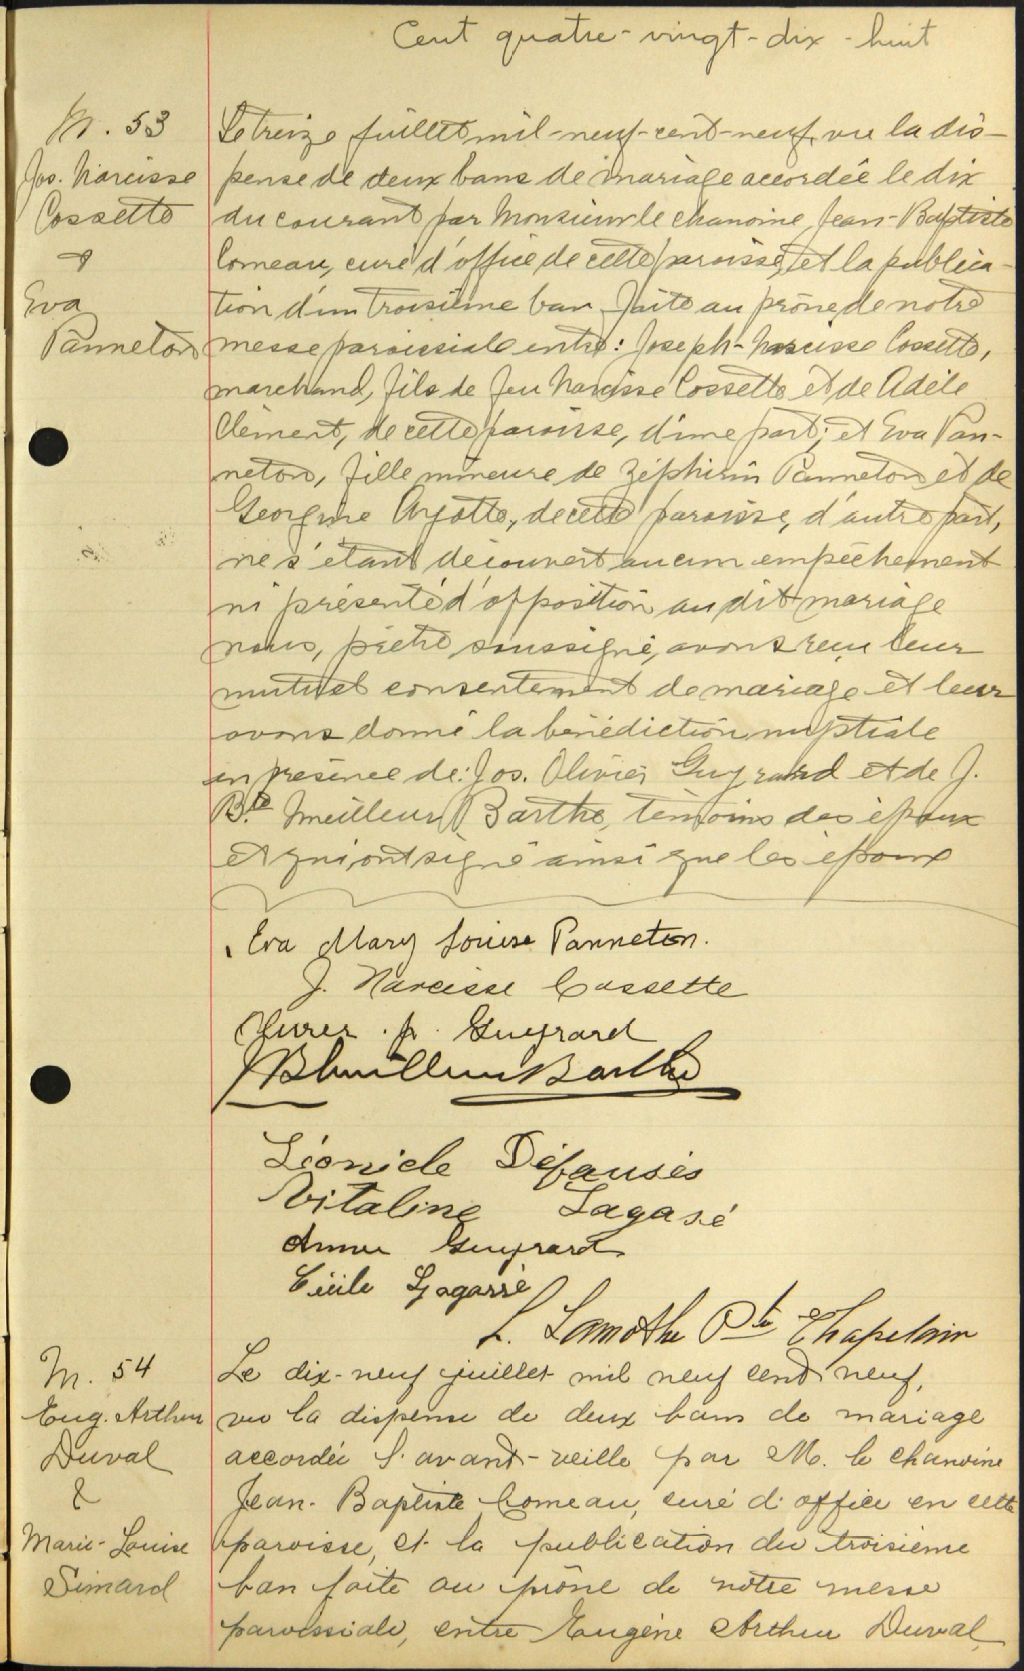 Cent quatre-vingt-dix-huit
M. 53
Jos. Narcisse
Cossette
&
Eva
Panneton
Le treize juillet mil-neuf-cent-neuf, vu la dis-
pense de deux bans de mariage accordée le dix
du courant par Monsieur le chanoine Jean-Baptiste
Comeau, curé d'office de cette paroisse, et la publica-
tion d'un troisième ban faite au prône de notre
messe paroissiale entre: Joseph-Narcisse Cossette,
marchand, fils de feu Narcisse Cossette et de Adèle
Clément, de cette paroisse, d'une part; et Eva Pan-
neton, fille mineure de Zéphirin Panneton et de
Georgine Ayotte, de cette paroisse, d'autre part,
ne s'étant découvert aucun empêchement
ni présenté d'opposition au dit mariage
nous, prêtre soussigné, avons reçu leur
mutuel consentement de mariage et leur
avons donné la bénédiction nuptiale
en présence de: Jos. Olivier Guyrard et de J.
B.te Meilleur Barthe, témoins des époux
et qui ont signé ainsi que les époux
Eva Mary Louise Panneton.
J. Narcisse Cossette
Guyrard
JB Meilleur Barthe
Léonide Défausés
Vitaline Lagasé
Anna Guyrard
Cécile Lagassé
L. Lamothe Ptre Chapelain
M. 54
Eug. Arthur
Duval
&
Marie-Louise
Simard
Le dix-neuf juillet mil neuf cent neuf,
vu la dispense de deux bans de mariage
accordée l'avant-veille par M. le chanoine
Jean-Baptiste Comeau, curé d'office en cette
paroisse, et la publication du troisième
ban faite au prône de notre messe
paroissiale, entre Eugène Arthur Duval,